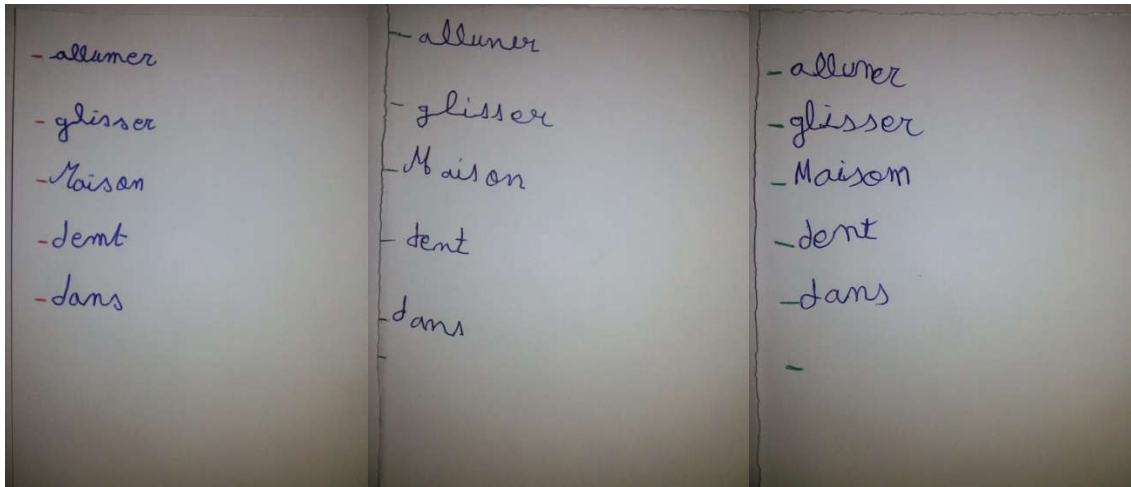 - allumer
- glisser
- Maison
- demt
- dans
- alluner
- glisser
- Maison
- dent
- dans
-
- alluner
- glisser
- Maisom
- dent
- dans
-